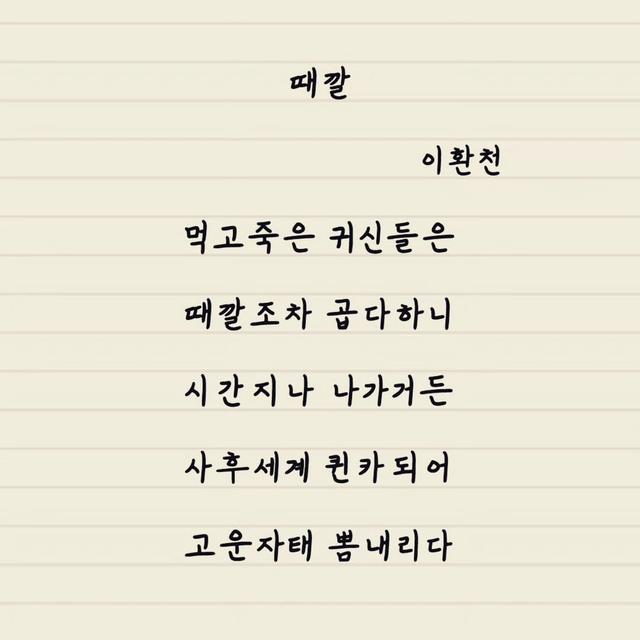 때깔
이환천
먹고죽은 귀신들은
때깔조차 곱다하니
시간지나 나가거든
사후세계 퀸카되어
고운자태 뽐내리다